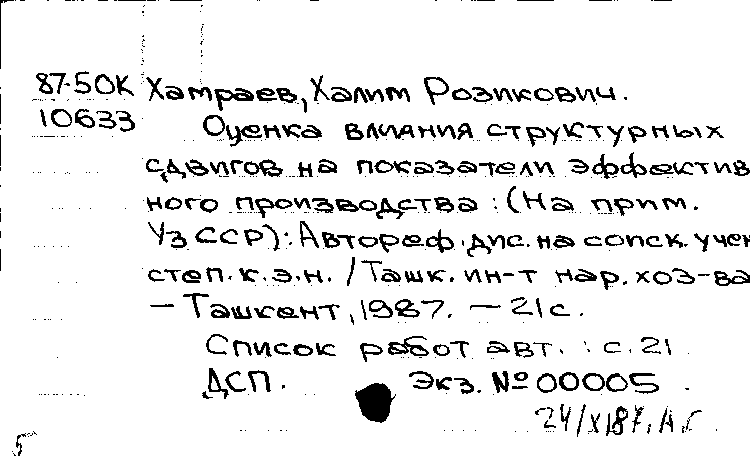 87-50К Хамраев, Халим Розикович.
10633 Оценка влияния структурных
сдвигов на показатели эффектив
ного производства : (На прим.
УзССР) : Автореф. дис. на соиск. учен
степ. к.э.н. / Ташк. ин-т нар. хоз-ва
— Ташкент, 1987. — 21 с.
Список работ авт. : с. 21
ДСП. Экз. № 00005 .
24/X187.
5